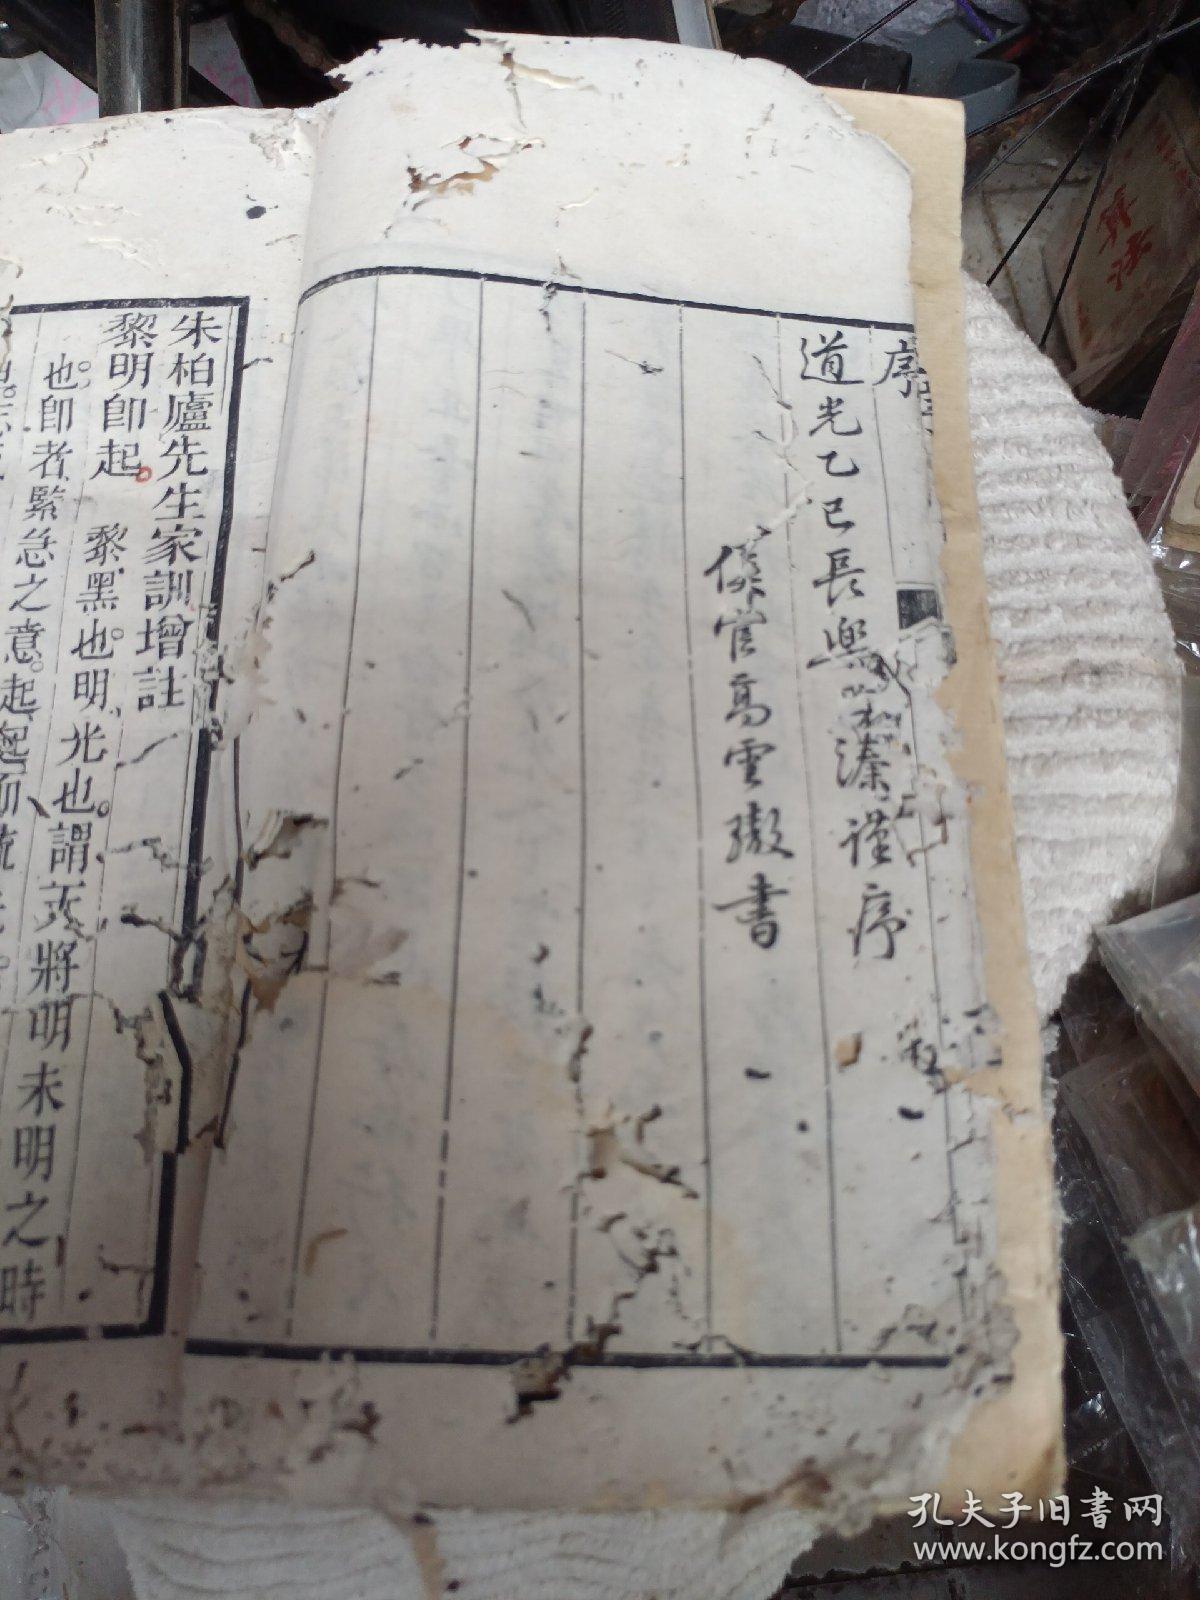 序
道光乙巳長樂溱謹序
儀官高雲書
朱柏廬先生家訓增註
黎明卽起。 黎黑也。明光也。謂天將明未明之時
也。卽者緊急之意。起起
孔夫子旧书网
www.kongfz.com